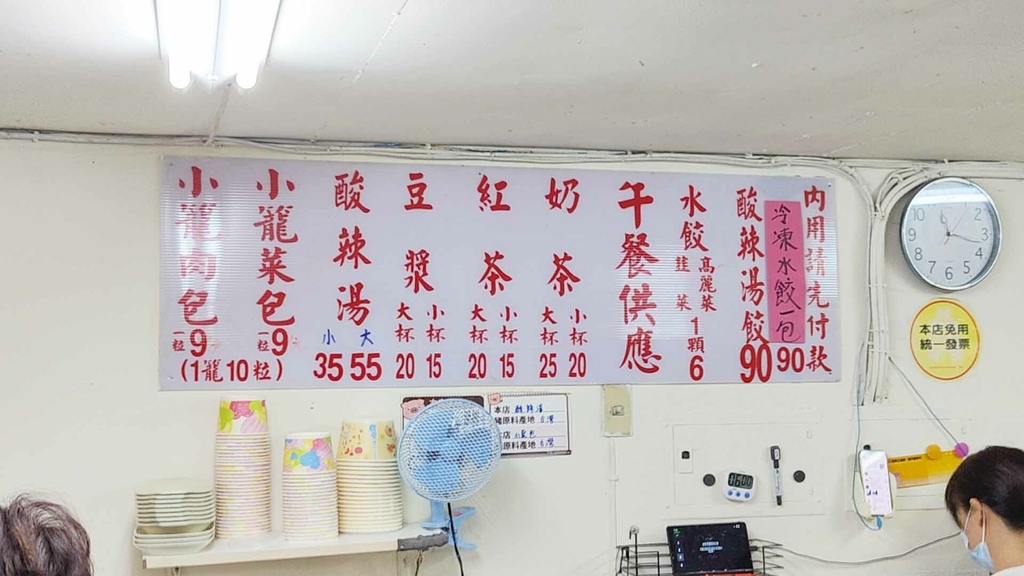 小籠肉包
一粒9
小籠菜包
一粒9
(1籠10粒)
酸辣湯
小 大
35 55
豆漿
大杯 小杯
20 15
紅茶
大杯 小杯
20 15
奶茶
大杯 小杯
25 20
午餐供應
水餃
韮菜 高麗菜
1顆
6
酸辣湯餃
90
冷凍水餃一包
90
內用請先付款
本店免用
統一發票
本店 酸辣湯
豬原料產地 台灣
店 小籠包
豬原料產地 台灣
10
11
12
1
2
3
4
5
6
7
8
9